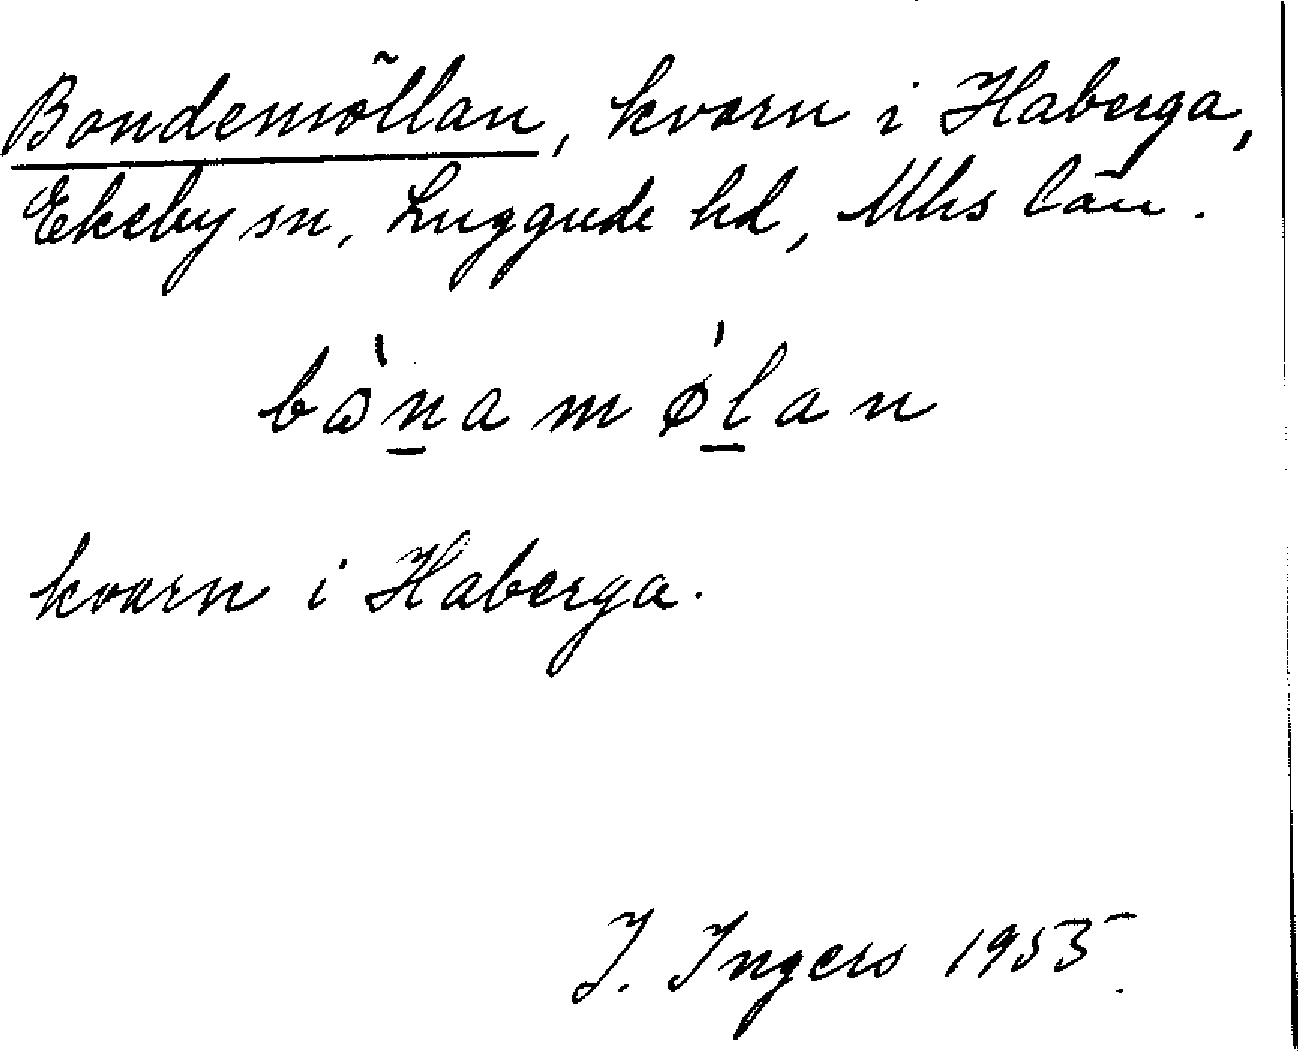 Bondemöllan, kvarn i Haberga,
Ekeby sn, Luggude hd, Mhs län.
bò̱namø̍ḻan
kvarn i Haberga.
I. Ingers 1955.